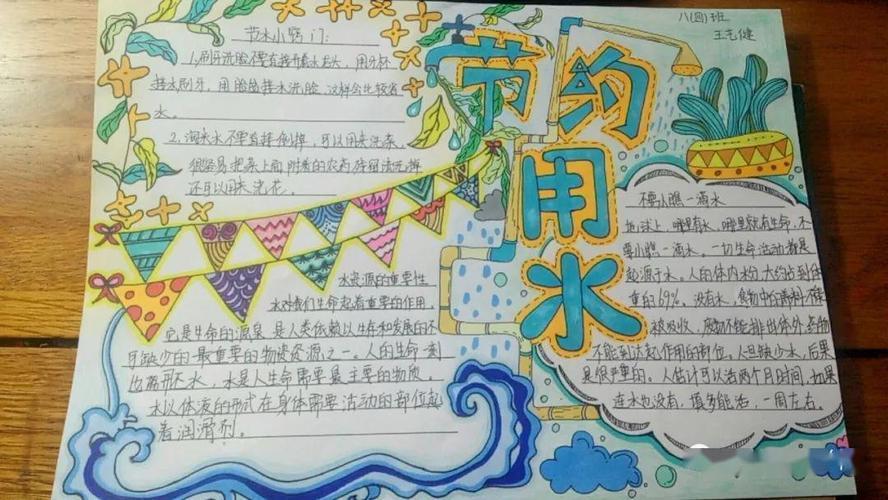 节约用水
八(四)班
王艺健
节水小窍门:
1.刷牙洗脸不要直接开着水龙头,用牙杯
接水刷牙,用脸盆接水洗脸,这样会比较省
水。
2.淘米水不要直接倒掉,可以用来洗菜,
很容易把菜上面附着的农药残留清洗掉
还可以用来浇花。
水资源的重要性
水对我们生命起着重要的作用,
它是生命的源泉,是人类依赖以生存和发展的不
可缺少的最重要的物质资源之一。人的生命一刻
也离不开水,水是人生命需要最主要的物质
水以体液的形式在身体需要活动的部位起
着润滑剂。
不要小瞧一滴水
地球上,哪里有水,哪里就有生命,不
要小瞧一滴水。一切生命活动都是
起源于水。人的体内水分,大约占到体
重的69%。没有水,食物中的养料不能
被吸收,废物不能排出体外,药物
不能到达起作用的部位。人旦缺少水,后果
是很严重的。人估计可以活两个月时间,如果
连水也没有,填多能活,一周左右。